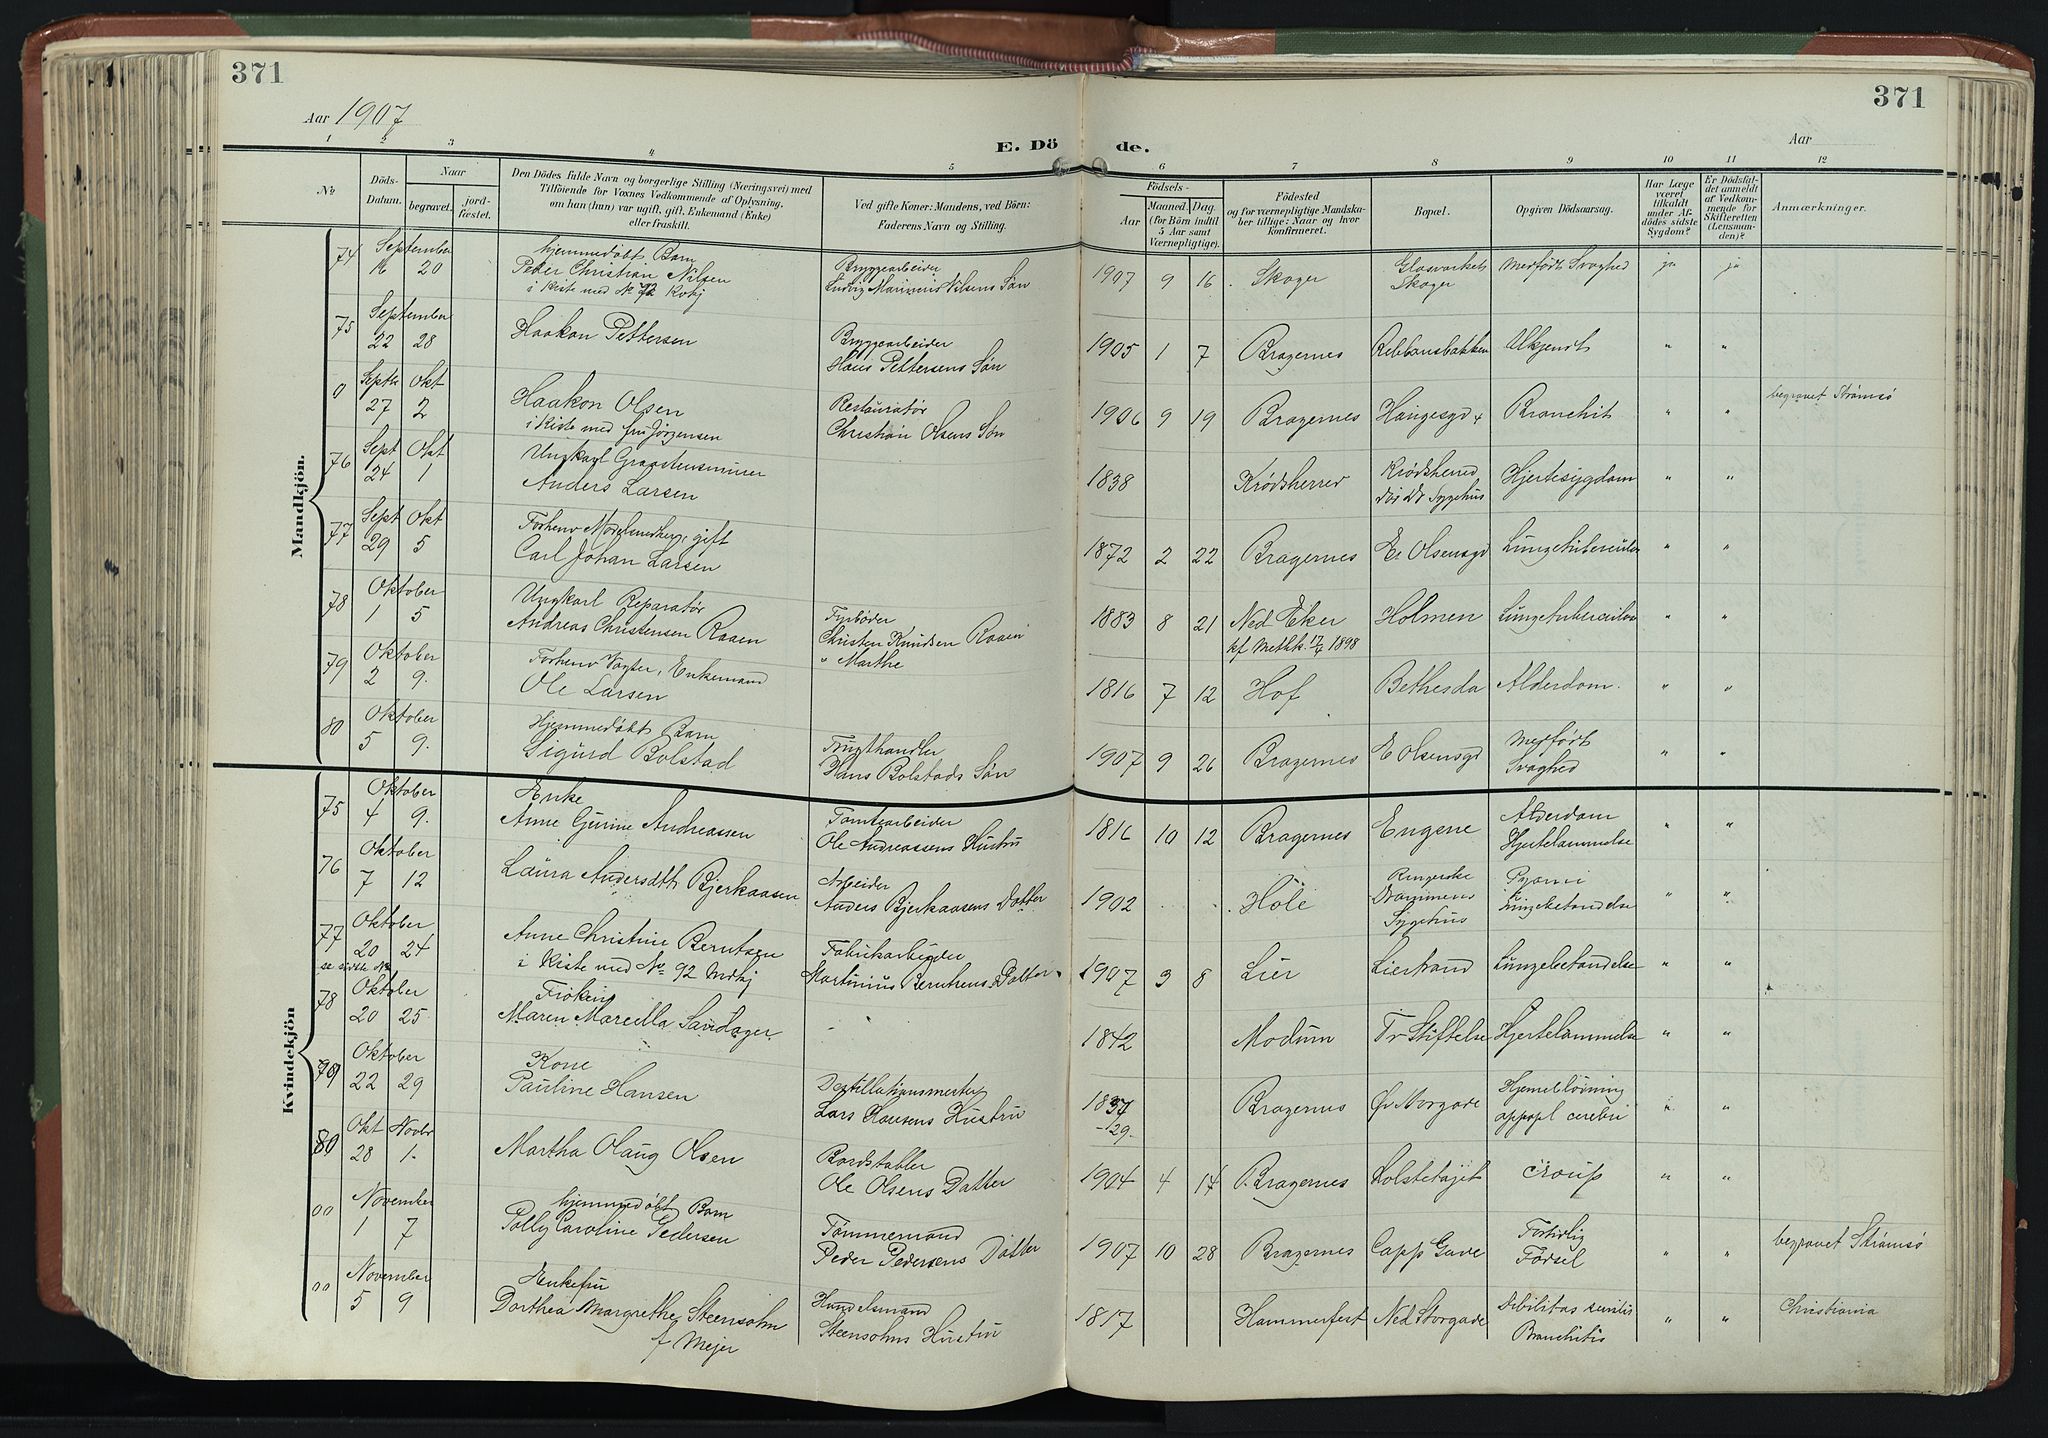 371
371
Aar 1907
Aar
E. Dö de.
1 2 3 4 5 6 7 8 9 10 11 12
No
Döds-Datum.
Naar
begravet.
jord-fæstet.
Den Dödes fulde Navn og borgerlige Stilling (Næringsvei) med
Tilföiende for Voxnes Vedkommende af Oplysning,
om han (hun) var ugift, gift, Enkemand (Enke)
eller fraskilt.
Ved gifte Koner: Mandens, ved Börn:
Faderens Navn og Stilling.
Födsels-
Aar
Maaned. Dag.
(for Börn indtil
5 Aar samt
Værnepligtige).
Födested
og for værnepligtige Mandska-
ber tillige: Naar og hvor
konfirmeret.
Bopæl.
Opgiven Dödsaarsag.
Har Læge
været
tilkaldt
under Af-
dödes sidste
Sygdom?
Er Dödsfal-
det anmeldt
af Vedkom-
mende for
Skifteretten
(Lensman-
den)?
Anmærkninger.
Mandkjön.
74 September 16 20
hjemmedøbt Barn
Peder Christian Nilsen
i Kiste med No 72 Kvkj
Bryggearbeider
Ludvig Marinius Nilsens Søn
1907 9 16 Skoger
Glasverket
Skoger
Medfødt Svaghed ja ja
75 September 22 28
Haakon Pettersen
Bryggearbeider
Hans Pettersens Søn
1905 1 7 Bragernes Ukjendt " "
0 Septb 27 Okt 2
Haakon Olsen
i Kiste med fru Jørgensen
Restauratør
Christian Olsens Søn
1906 9 19 Bragernes Haugesgd Bronchit " " begravet Strømsø
76 Sept 24 Okt 1
Ungkarl
Anders Larsen
1838 Krødsherred
Krødsherred
Sygehus
Hjertesygdom " "
77 Sept 29 Okt 5
Forhenv gift
Carl Johan Larsen
1872 2 22 Bragernes E. Olsensgd Lungetuberculos " "
78 Oktober 1 5
Ungkarl Reparatør
Andreas Christensen Raaen
Fyrbøder
Christen Knudsen Raaen
" Marthe
1883 8 21 Ned Eker
kf Methk. 17/4 1898
Holmen Lungetuberculos " "
79 Oktober 2 9.
Forhenv Vogter, Enkemand
Ole Larsen
1816 7 12 Hof Bethesda Alderdom. " "
80 Oktober 5 9.
Hjemmedøbt Barn
Sigurd Bolstad
Frugthandler
Hans Bolstads Søn
1907 9 26 Bragernes E Olsensgd
Medfødt
Svaghed " "
Kvindekjön
75 Oktober 4 9.
Enke
Anne Gurine Andreassen
Tomtearbeider
Ole Andreassens Hustru
1816 10 12 Bragernes Engene
Alderdom
Hjertelammelse " "
76 Oktober 7 12
Laura Andersdtt Bjerkaasen
Arbeider
Anders Bjerkaasens Datter
1902 Hole
Ringerike
Drammens
Sygehus
Pyæmi
Lungebetændelse " "
77 Oktober 20 24
se sidste No
Anne Christine Berntsen
i Kiste med No 92 Mdkj
Fabrikarbeider
Martinius Berntsens Datter
1907 3 8 Lier Lierstrand Lungebetændelse " "
78 Oktober 20 25
Frøken
Maren Marcella Sandager
1842 Modum Tr Stiftelse Hjertelammelse " "
79 Oktober 22 29
Kone
Pauline Hansen
Destillationsmester
Lars Hansens Hustru
1837
-29-
Bragernes Øv Storgade
apopl cerebri " "
80 Okt 28 Novbr 1-
Martha Olaug Olsen
Bordstabler
Ole Olsens Datter
1904 4 14 Bragernes Croup " "
00 November 1 7
hjemmedøbt Barn
Polly Caroline Pedersen
Tømmermand
Peder Pedersens Datter
1907 10 28 Bragernes Capp Gave
Fortidlig
Fødsel " " begravet Strømsø
00 November 5 9
Enkefru
Dorthea Margrethe Steensohn
f Mejer
Handelsmand
Steensohns Hustru
1817 Hammerfest Ned Storgade
Debilitas senilis
Bronchitis " " Christiania